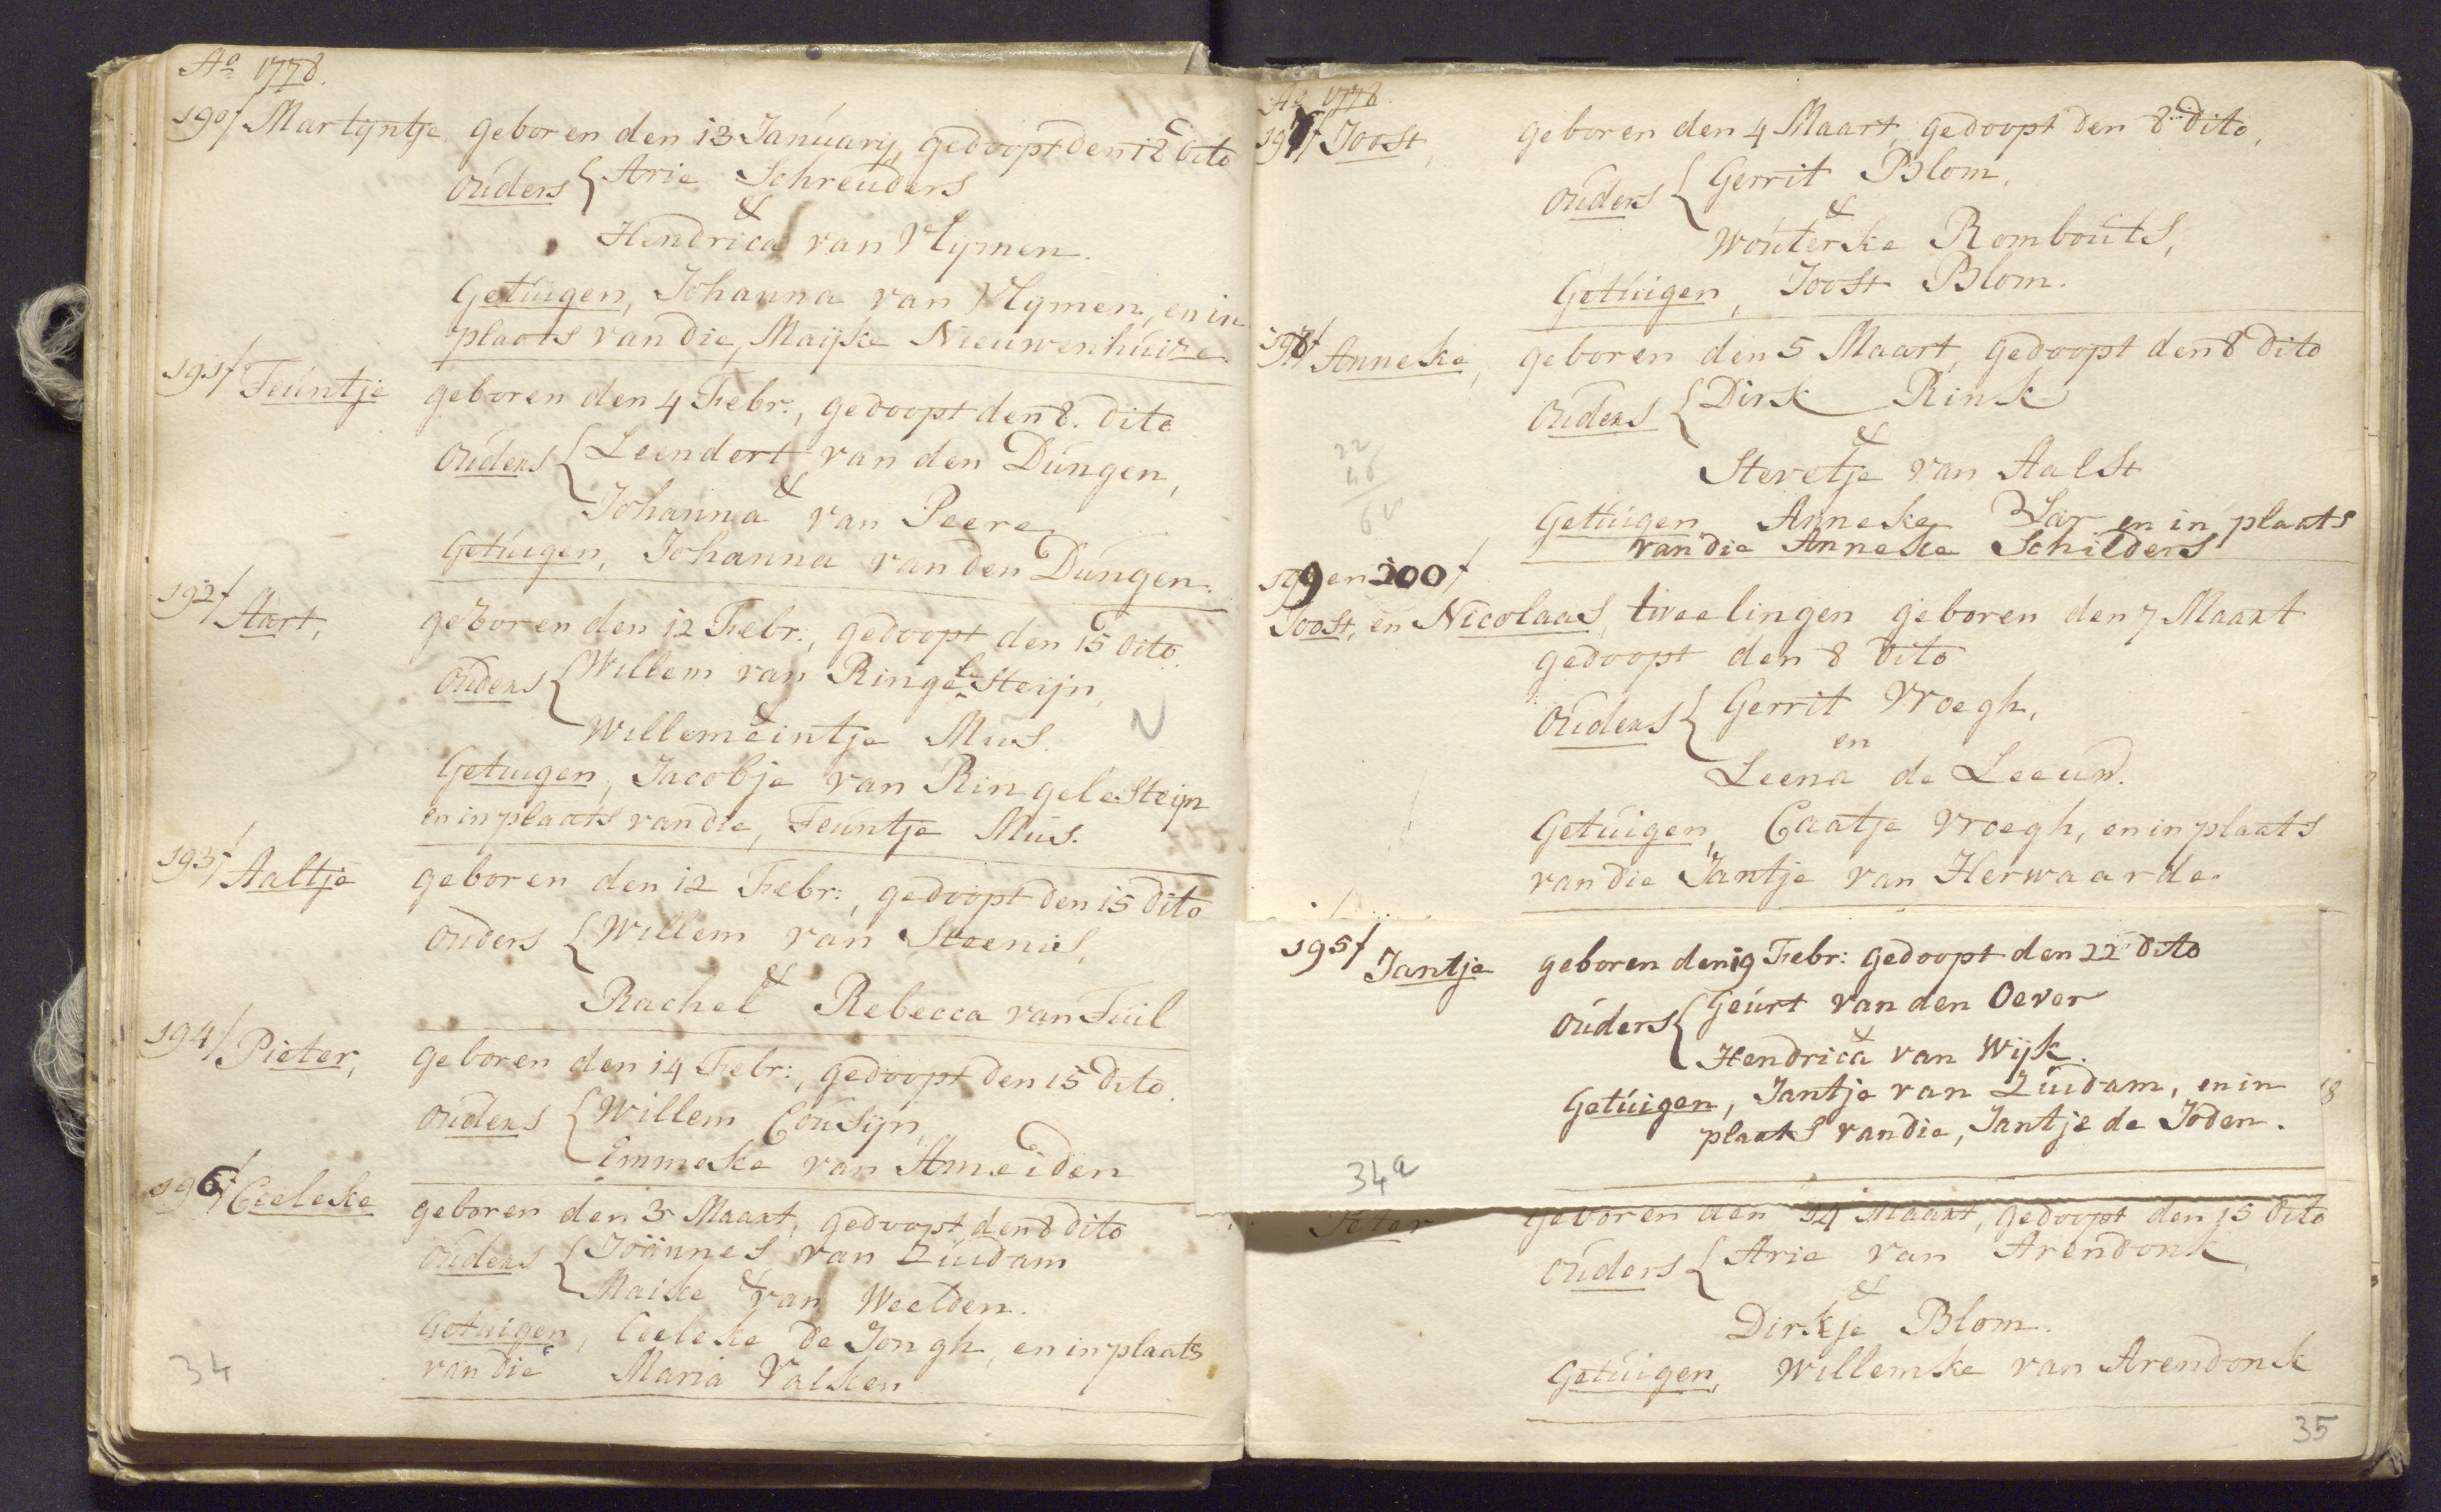 Ao 1778.
190/ Martijntje geboren den 13 Januarij, gedoopt den 18 dito
ouders { Arie Schreuders
&
Hendrica van Vlijmen.
Getuigen, Johanna van Vlymen, en in
plaats van die, Maijke Nieuwenhuize
191/ Teuntje geboren den 4 Febr:, gedoopt den 8. dito
ouders { Leendert van den Dungen,
&
Johanna van Peere
Getuigen, Johanna van den Dungen.
192/ Aart, geboren den 12 Febr:, gedoopt den 15 dito.
ouders { Willem van Ringelesteijn,
&
Willemeintje Mus.
N
Getuigen, Jacobje van Ringelesteijn
en in plaats van die, Teuntje Mus.
193/ Aaltje geboren den 12 Febr:, gedoopt den 15 dito
ouders { Willem van Steenis,
&
Rachel Rebecca van Tuil
194/ Pieter, geboren den 14 Febr:, gedoopt den 15 dito.
ouders { Willem Cousijn,
Emmeske van Ameiden
196/ Ceeleke geboren den 3 Maart, gedoopt den 8 dito
ouders { Joännes van Zuidam
&
Maike van Weelden.
Getuigen, Ceeleke de Jongh, en in plaats
van die Maria Valken
34
Ao 1778.
197/ Joost, geboren den 4 Maart, gedoopt den 8 dito,
ouders { Gerrit Blom,
&
Wouterske Rombouts,
Getuigen, Joost Blom.
198/ Anneke, geboren den 5 Maart, gedoopt den 8 dito
ouders { Dirk Rink
&
Stevetje van Aalst
22
46
Getuigen, Anneke en in plaats
van die Anneke Schilders
199 en 200/
Joost, en Nicolaas, tweelingen geboren den 7 Maart
gedoopt den 8 dito
ouders { Gerrit Vroegh,
en
Leena de Leeuw.
Getuigen, Caatje Vroegh, en in plaats
van die Jantje van Herwaarde.
195/ Jantje geboren den 19 Febr: gedoopt den 22 dito
ouders { Geurt van den Oever
&
Hendrica van Wijk.
Getuigen, Jantje van Zuidam, en in
plaats van die, Jantje de Joden.
34a
geboren den 14 Maart, gedoopt den 15 dito
ouders { Arie van Arendonk,
&
Dirkje Blom.
Getuigen, Willemke van Arendonk
35